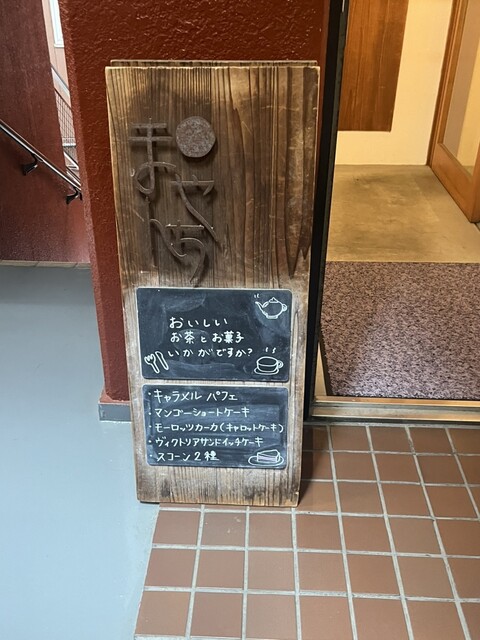 おいしい
お茶とお菓子
いかがですか?
・キャラメル パフェ
・マンゴーショートケーキ
・モーロッツカーカ(キャロットケーキ)
・ヴィクトリアサンドイッチケーキ
・スコーン2種